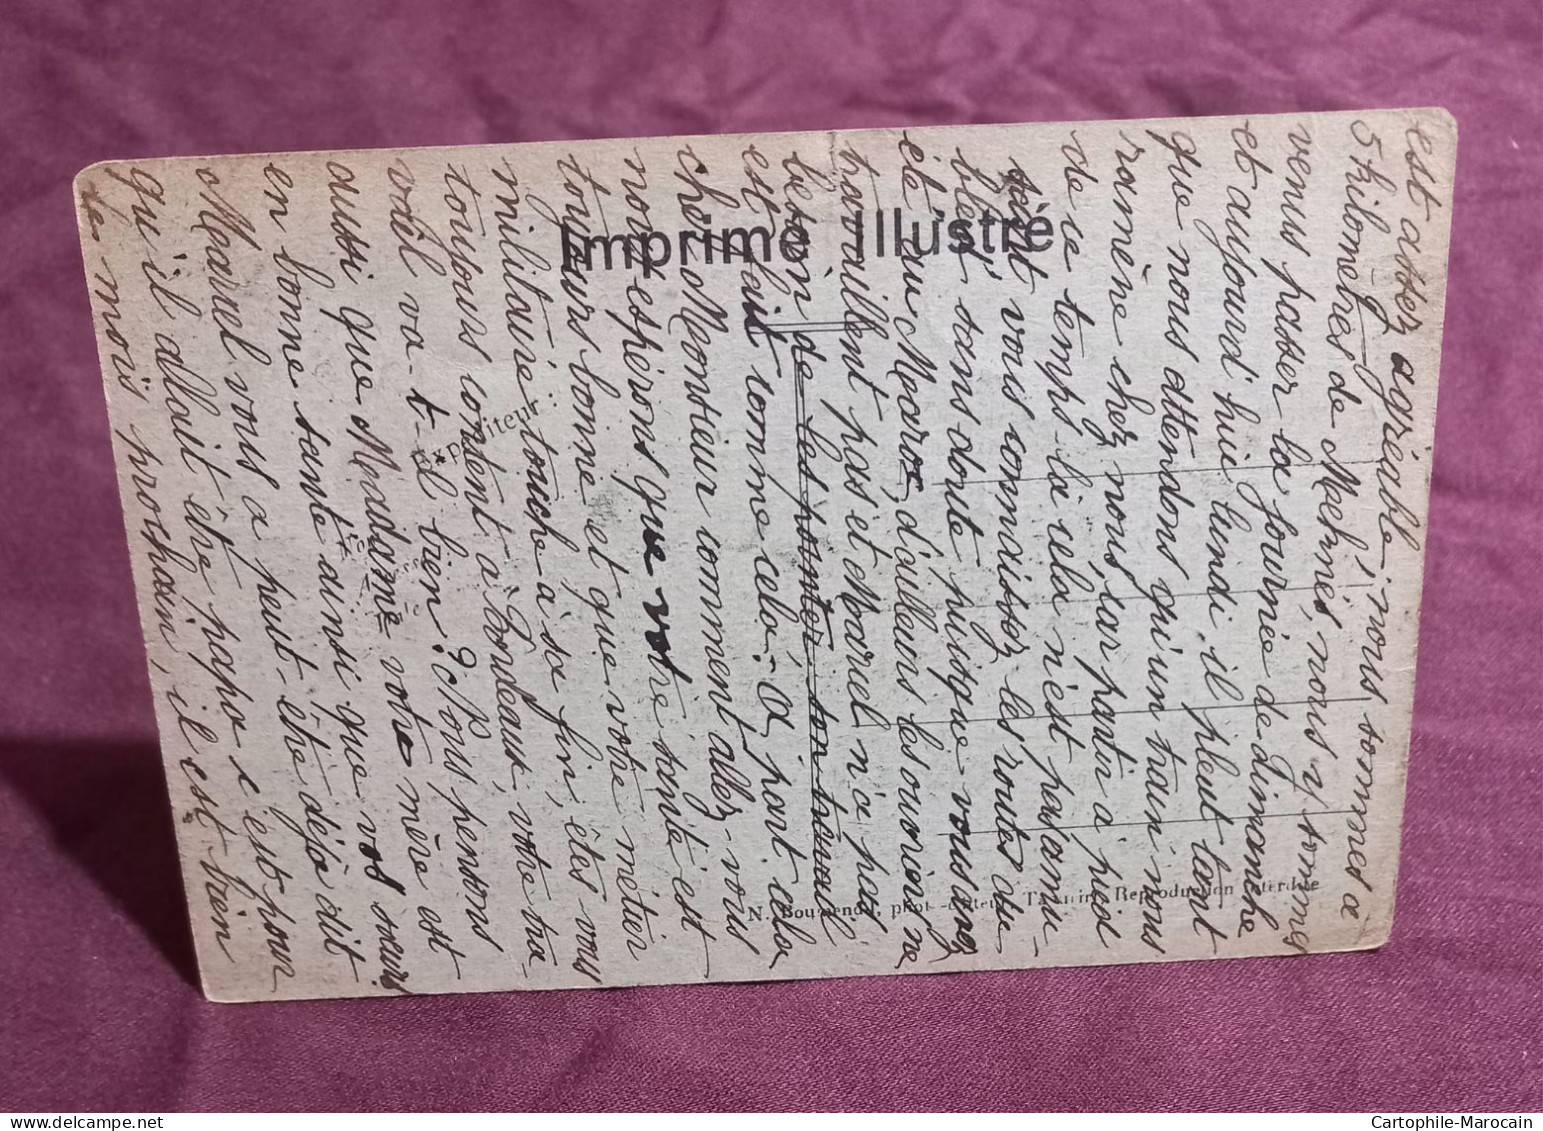 est assez agréable, nous sommes à
5 kilomètres de Meknès, nous y sommes
venus passer la journée de dimanche
et aujourd'hui lundi il pleut tant
que nous attendons qu'un train nous
ramène chez nous, car partir à pied
de ce temps là cela n'est pas amu-
sant vous connaissez les routes du
bled sans doute puisque vous avez
été au Maroc, d'ailleurs les ouvriers ne
travaillent pas et Marcel n'a pas
besoin de les pointer son travail
est fait comme cela. A part cela
cher Monsieur comment allez-vous
nous espérons que votre santé est
toujours bonne et que votre métier
militaire touche à sa fin, êtes vous
toujours content à Bordeaux, votre tra-
vail va-t-il bien? Nous pensons
aussi que Madame votre mère est
en bonne santé ainsi que vos sœurs.
Marcel vous a peut-être déjà dit
qu'il allait être papa c'est pour
le mois prochain, il est bien
Imprimé Illustré
Expéditeur :
N. Boumendil, phot.-éditeur, Reproduction interdite
Cartophile-Marocain
www.delcampe.net